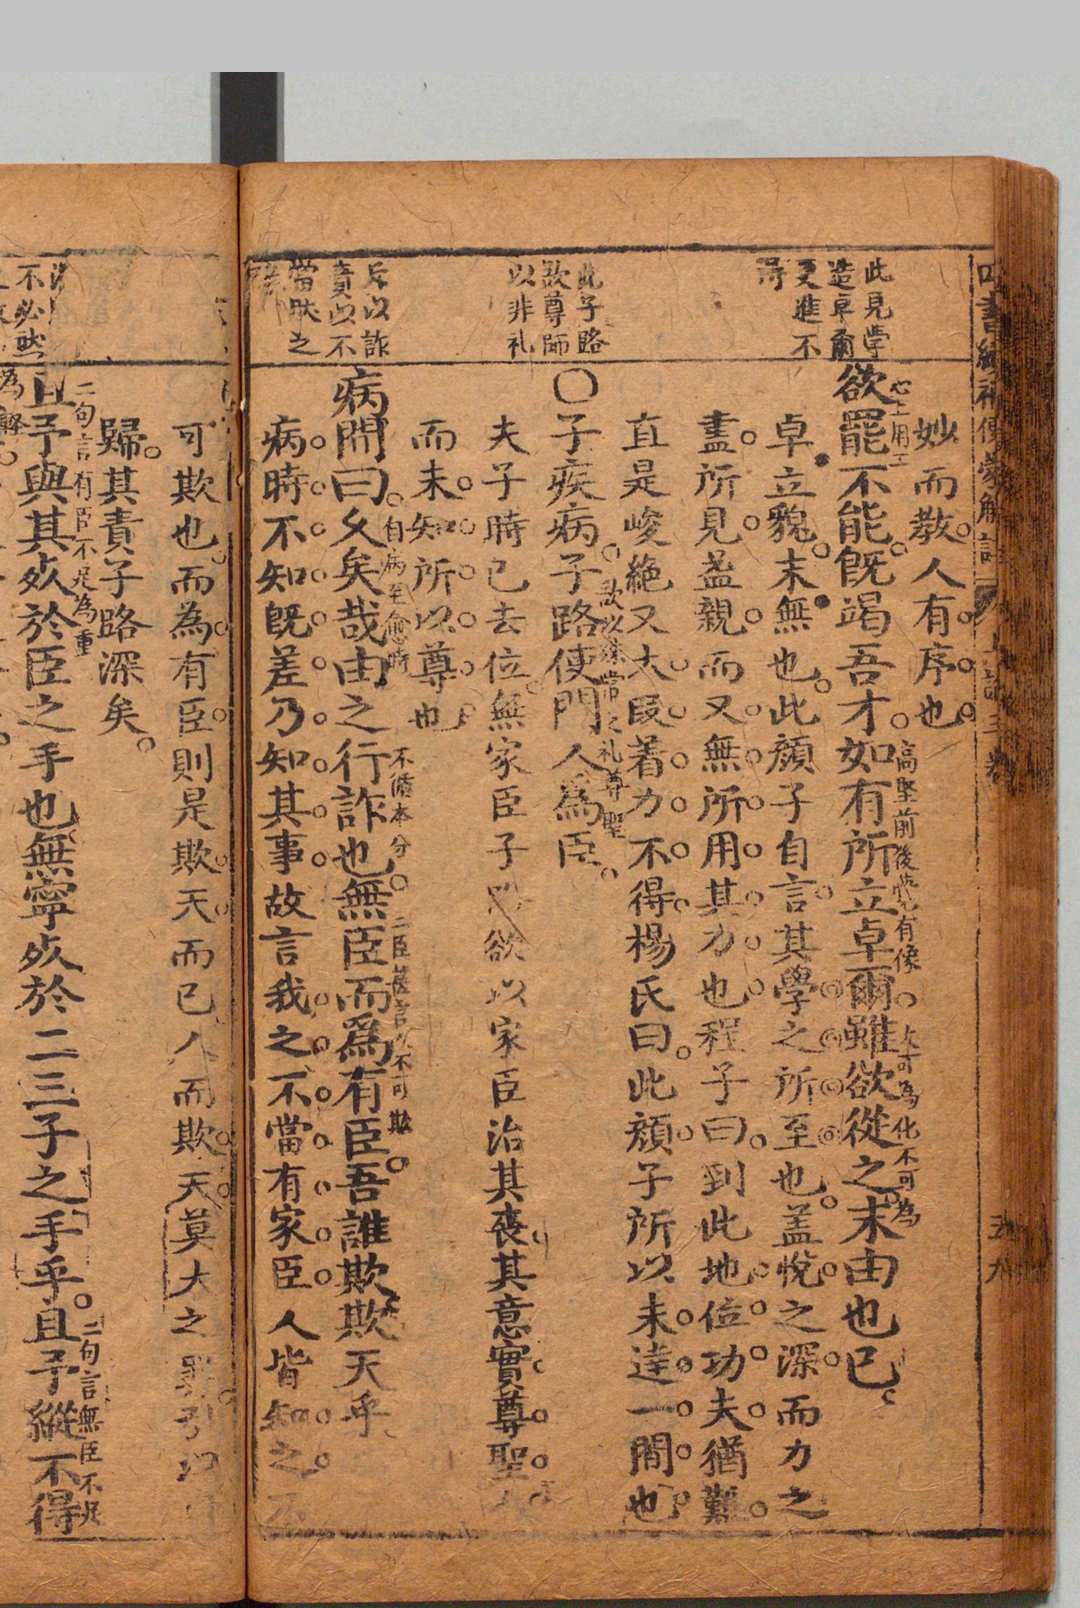 此見學
造卓爾
更進不
得
此子路
欲尊師
以非礼
斥以詐
責以不
當欺之
妙而教人有序也
心上用工
欲罷不能既竭吾才如有所立卓爾雖欲從之末由也已
高堅前後恍有像
大可為化不可為
卓立貌末無也此顏子自言其學之所至也蓋悅之深而力之
盡所見益親而又無所用其力也程子曰到此地位功夫猶難
直是峻絶又大段着力不得楊氏曰此顏子所以未達一間也
〇子疾病子路使門人爲臣
欲以殊常之礼尊聖
夫子時已去位無家臣子欲以家臣治其喪其意實尊聖
而未知所以尊也
病間曰久矣哉由之行詐也無臣而爲有臣吾誰欺欺天乎
自病至愈時
不循本分
病時不知既差乃知其事故言我之不當有家臣人皆知之不
可欺也而為有臣則是欺天而已人而欺天莫大之罪引以
歸其責子路深矣
二句言有臣不足為重
且予與其死於臣之手也無寧死於二三子之手乎且予縱不得
二句言無臣不足
不必然